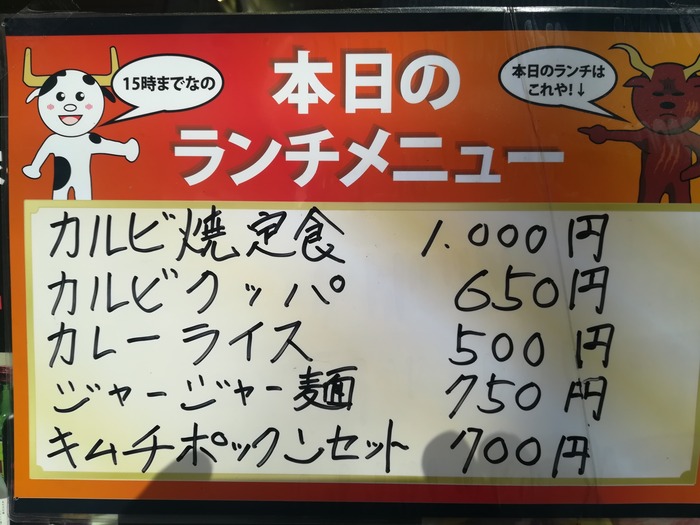 15時までなの
本日の
ランチメニュー
本日のランチは
これや!↓
カルビ焼定食 1.000円
カルビクッパ 650円
カレーライス 500円
ジャージャー麺 750円
キムチポックンセット 700円